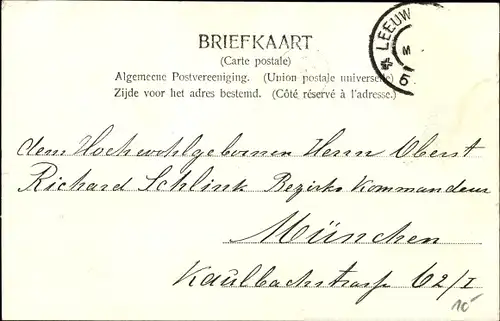 BRIEFKAART
(Carte postale)
Algemeene Postvereeniging. (Union postale universelle)
Zijde voor het adres bestemd. (Côté réservé à l'adresse.)
LEEUW
M
5
dem Hochwohlgebornen Herrn Oberst
Richard Schlink Bezirks Kommandeur
München
Kaulbachstrasse 62/I
10-